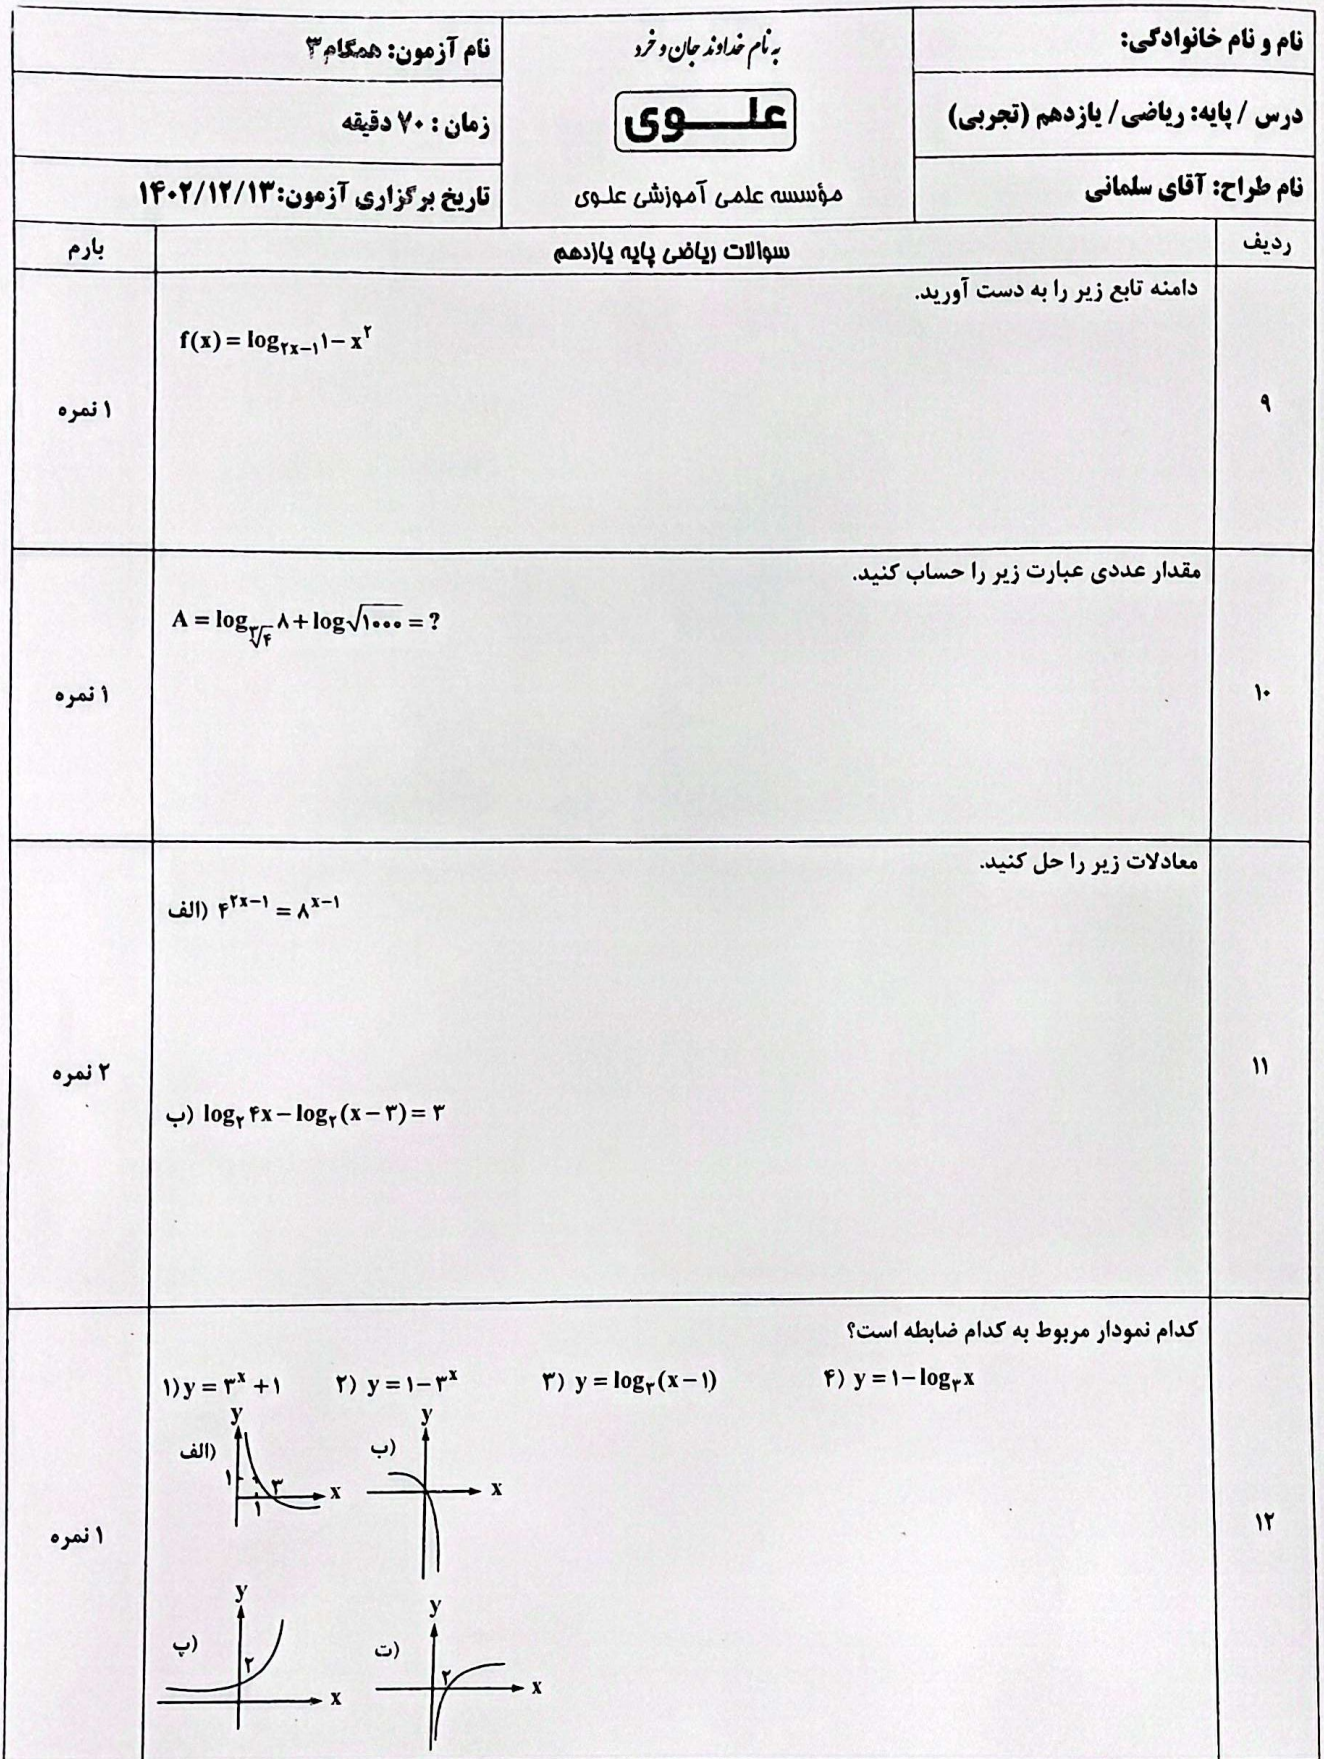 نام و نام خانوادگی:
درس / پایه: ریاضی/ یازدهم (تجربی)
نام طراح: آقای سلمانی
به نام خداوند جان و خرد
علــوی
مؤسسه علمی آموزشی علـوی
نام آزمون: همگام ۳
زمان : ۷۰ دقیقه
تاریخ برگزاری آزمون: ۱۴۰۲/۱۲/۱۳
ردیف
سوالات ریاضی پایه یازدهم
بارم
۹
دامنه تابع زیر را به دست آورید.
f(x) = log_{۲x-۱} ۱-x^۲
۱ نمره
۱۰
مقدار عددی عبارت زیر را حساب کنید.
A = log_{∛۴} ۸ + log√۱۰۰۰ = ?
۱ نمره
۱۱
معادلات زیر را حل کنید.
الف) ۴^{۲x-۱} = ۸^{x-۱}
ب) log_۲ ۴x - log_۲ (x-۳) = ۳
۲ نمره
۱۲
کدام نمودار مربوط به کدام ضابطه است؟
۱) y = ۳^x + ۱ ۲) y = ۱ - ۳^x ۳) y = log_۳ (x-۱) ۴) y = ۱ - log_۳ x
الف) y x ۱ ۱ ۳
ب) y x
پ) y x ۲
ت) y x ۲
۱ نمره